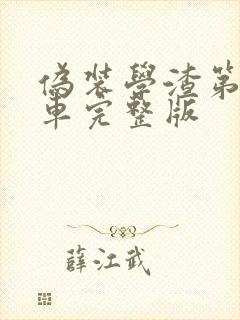 偽裝學渣第
車完整版
薛江武